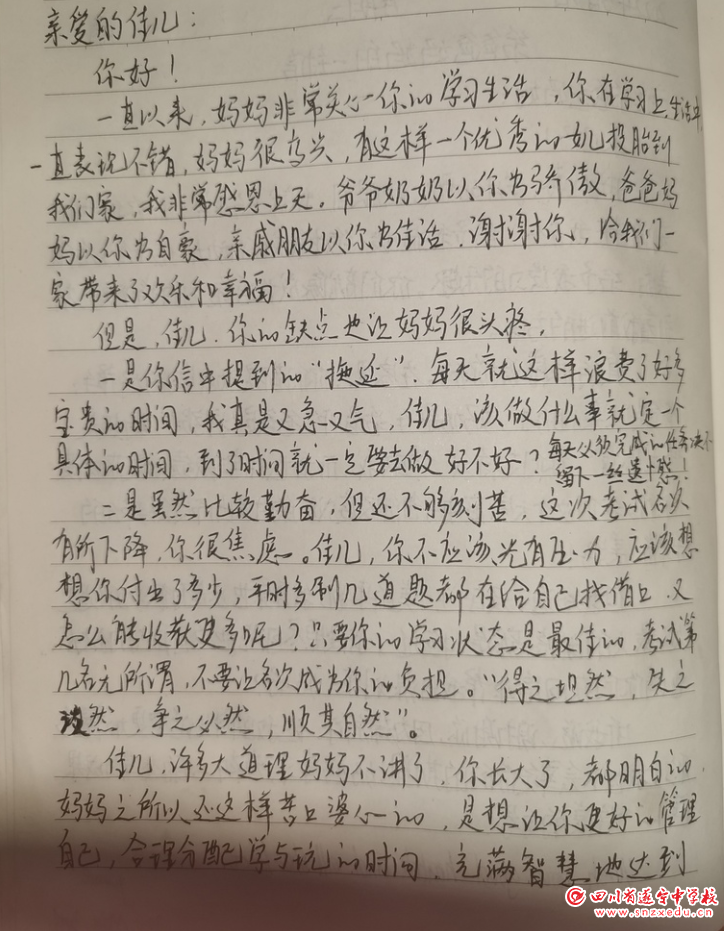 亲爱的佳儿：
你好！
一直以来，妈妈非常关心你的学习生活，你在学习上、生活中
一直表现不错，妈妈很高兴，有这样一个优秀的女儿投胎到
我们家，我非常感恩上天。爷爷奶奶以你为骄傲，爸爸妈
妈以你为自豪，亲戚朋友以你为佳话，谢谢你，给我们一
家带来了欢乐和幸福！
但是，佳儿，你的缺点也让妈妈很头疼。
一是你信中提到的“拖延”，每天就这样浪费了好多
宝贵的时间，我真是又急又气，佳儿，该做什么事就定一个
具体的时间，到了时间就一定要去做好不好？每天必须完成的任务决不
留下一丝遗憾！
二是虽然比较勤奋，但还不够刻苦，这次考试名次
有所下降，你很焦虑。佳儿，你不应该光有压力，应该想
想你付出了多少，平时多刷几道题都在给自己找借口，又
怎么能收获更多呢？只要你的学习状态是最佳的，考试第
几名无所谓，不要让名次成为你的负担。“得之坦然，失之
淡然，争之必然，顺其自然”。
佳儿，许多大道理妈妈不讲了，你长大了，都明白的，
妈妈之所以还这样苦口婆心的，是想让你更好的管理
自己，合理分配学与玩的时间，充满智慧地达到
四川省遂宁中学校
www.snzxedu.cn